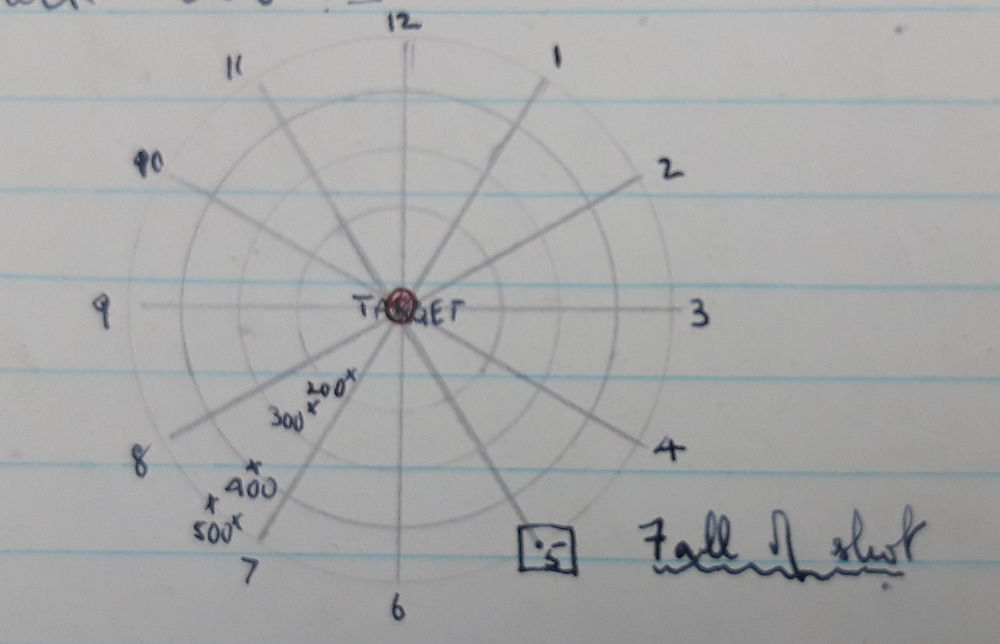 12
11
1
10
2
9
TARGET
3
200x
300x
8
4
400
500x
7
.5
Fall of shot
6